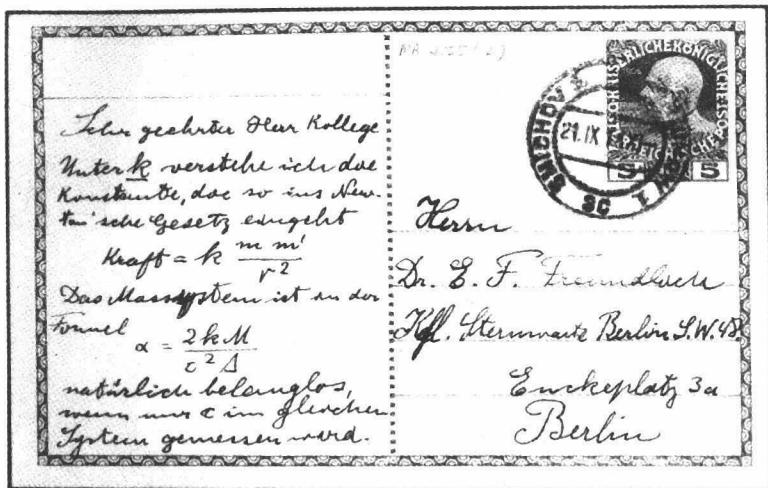 Sehr geehrter Herr Kollege
Unter k verstehe ich die
Konstante, die so ins New-
ton'sche Gesetz eingeht
Kraft = k m m' / r²
Das Massystem ist in der
Formel α = 2kM / c²Δ
natürlich belanglos,
wenn nur c im gleichen
System gemessen wird.
KAISERLICHEKÖNIGLICHE
5 5
SMICHOV 1
21.IX
3c
Herrn
Dr. E. F. Freundlich
Kgl. Sternwarte Berlin S.W.48.
Enckeplatz 3a
Berlin